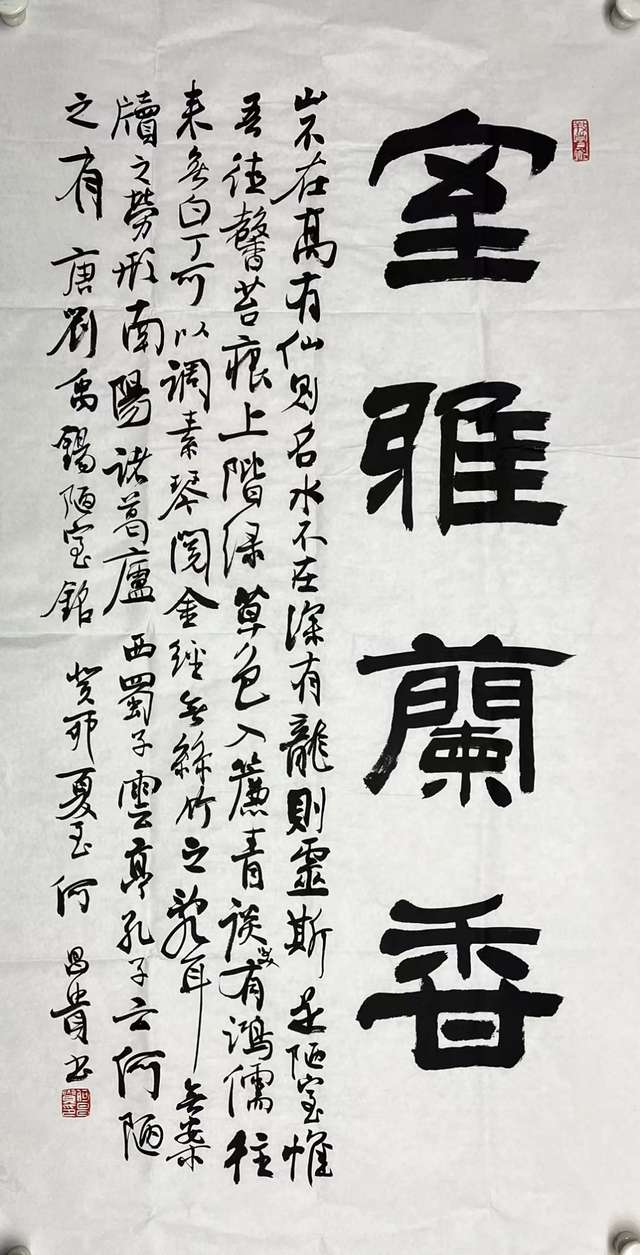 室雅蘭香
山不在高有仙則名水不在深有龍則靈斯是陋室惟
吾德馨苔痕上階綠草色入簾青談笑有鴻儒往
來無白丁可以調素琴閱金經無絲竹之亂耳無案
牘之勞形南陽諸葛廬西蜀子雲亭孔子云何陋
之有 唐劉禹錫陋室銘 癸卯夏 何昌貴书